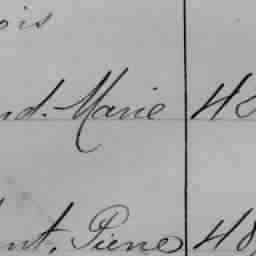 ois
nd. Marie 48
ent, Pierre 48